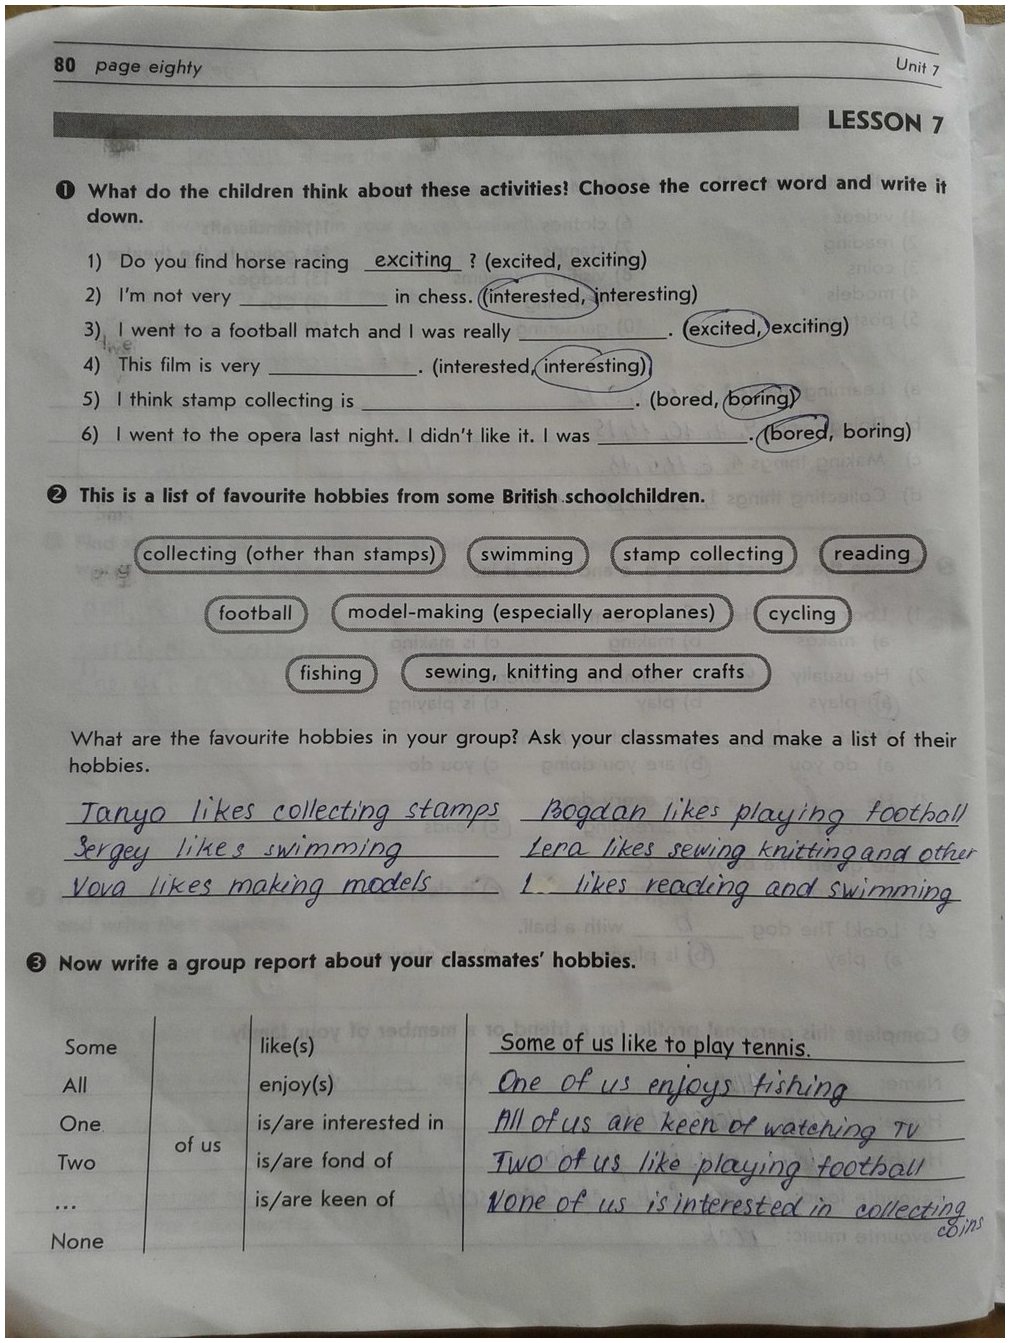 80 page eighty Unit 7
LESSON 7
1 What do the children think about these activities? Choose the correct word and write it
down.
1) Do you find horse racing exciting ? (excited, exciting)
2) I'm not very ____________ in chess. (interested, interesting)
3) I went to a football match and I was really ____________. (excited, exciting)
4) This film is very ____________. (interested, interesting)
5) I think stamp collecting is ______________________. (bored, boring)
6) I went to the opera last night. I didn't like it. I was ____________. (bored, boring)
2 This is a list of favourite hobbies from some British schoolchildren.
collecting (other than stamps) swimming stamp collecting reading
football model-making (especially aeroplanes) cycling
fishing sewing, knitting and other crafts
What are the favourite hobbies in your group? Ask your classmates and make a list of their
hobbies.
Tanya likes collecting stamps Bogdan likes playing football
Sergey likes swimming Lera likes sewing knitting and other
Vova likes making models I likes reading and swimming
3 Now write a group report about your classmates' hobbies.
Some like(s) Some of us like to play tennis.
All enjoy(s) One of us enjoys fishing
One is/are interested in All of us are keen of watching TV
of us
Two is/are fond of Two of us like playing football
... is/are keen of None of us is interested in collecting
coins
None